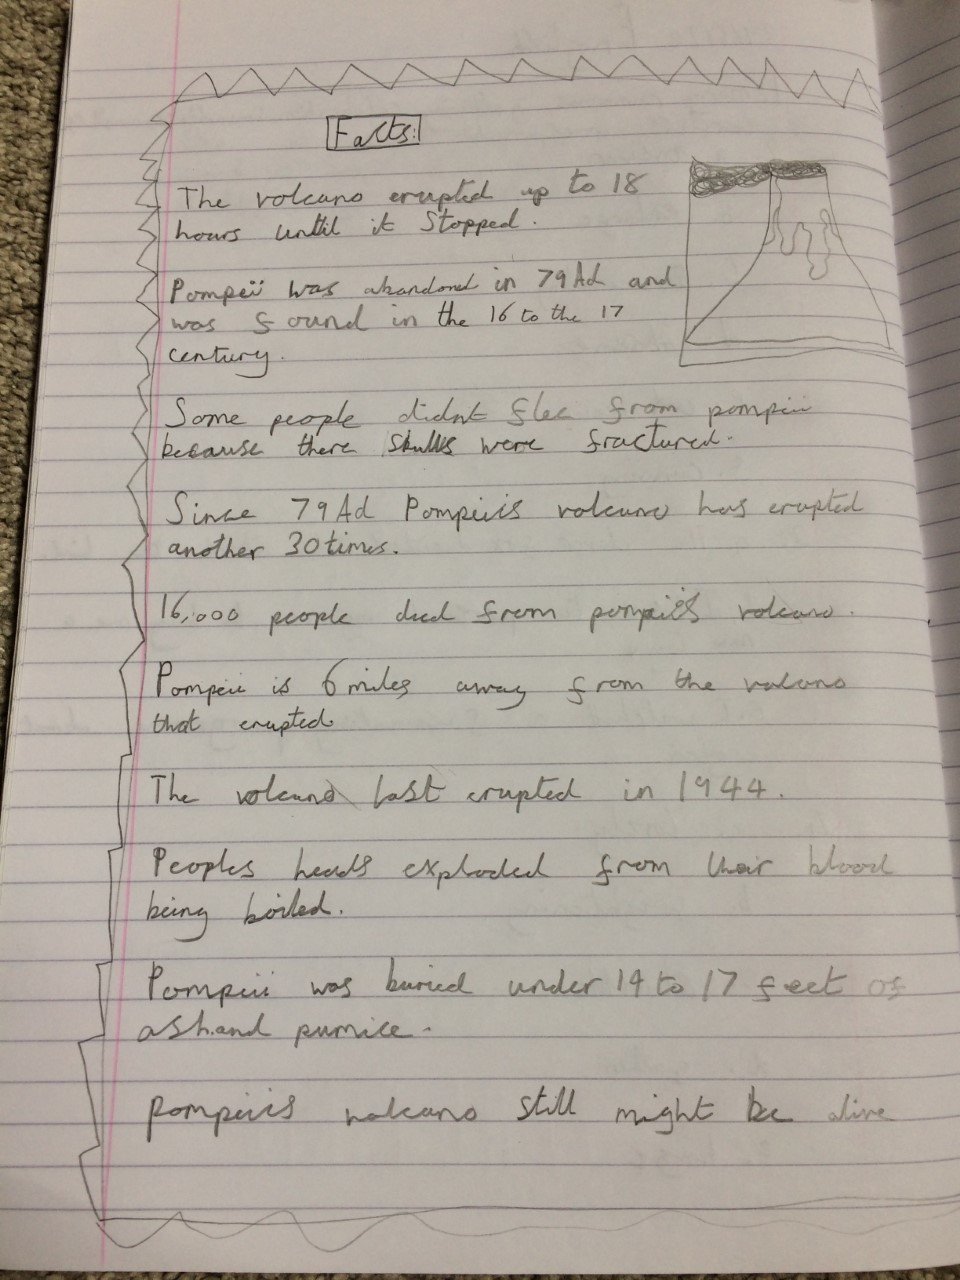 Facts:
The volcano erupted up to 18
hours until it Stopped.
Pompeii was abandoned in 79 Ad and
was found in the 16 to the 17
century.
Some people didnt flee from pompeii
because there skulls were fractured.
Since 79 Ad Pompeiis volcano has erupted
another 30 times.
16,000 people died from pompeiis volcano.
Pompeii is 6 miles away from the volcano
that erupted
The volcano last erupted in 1944.
Peoples heads exploded from their blood
being boiled.
Pompeii was buried under 14 to 17 feet of
ash and pumice.
pompeiis volcano still might be alive